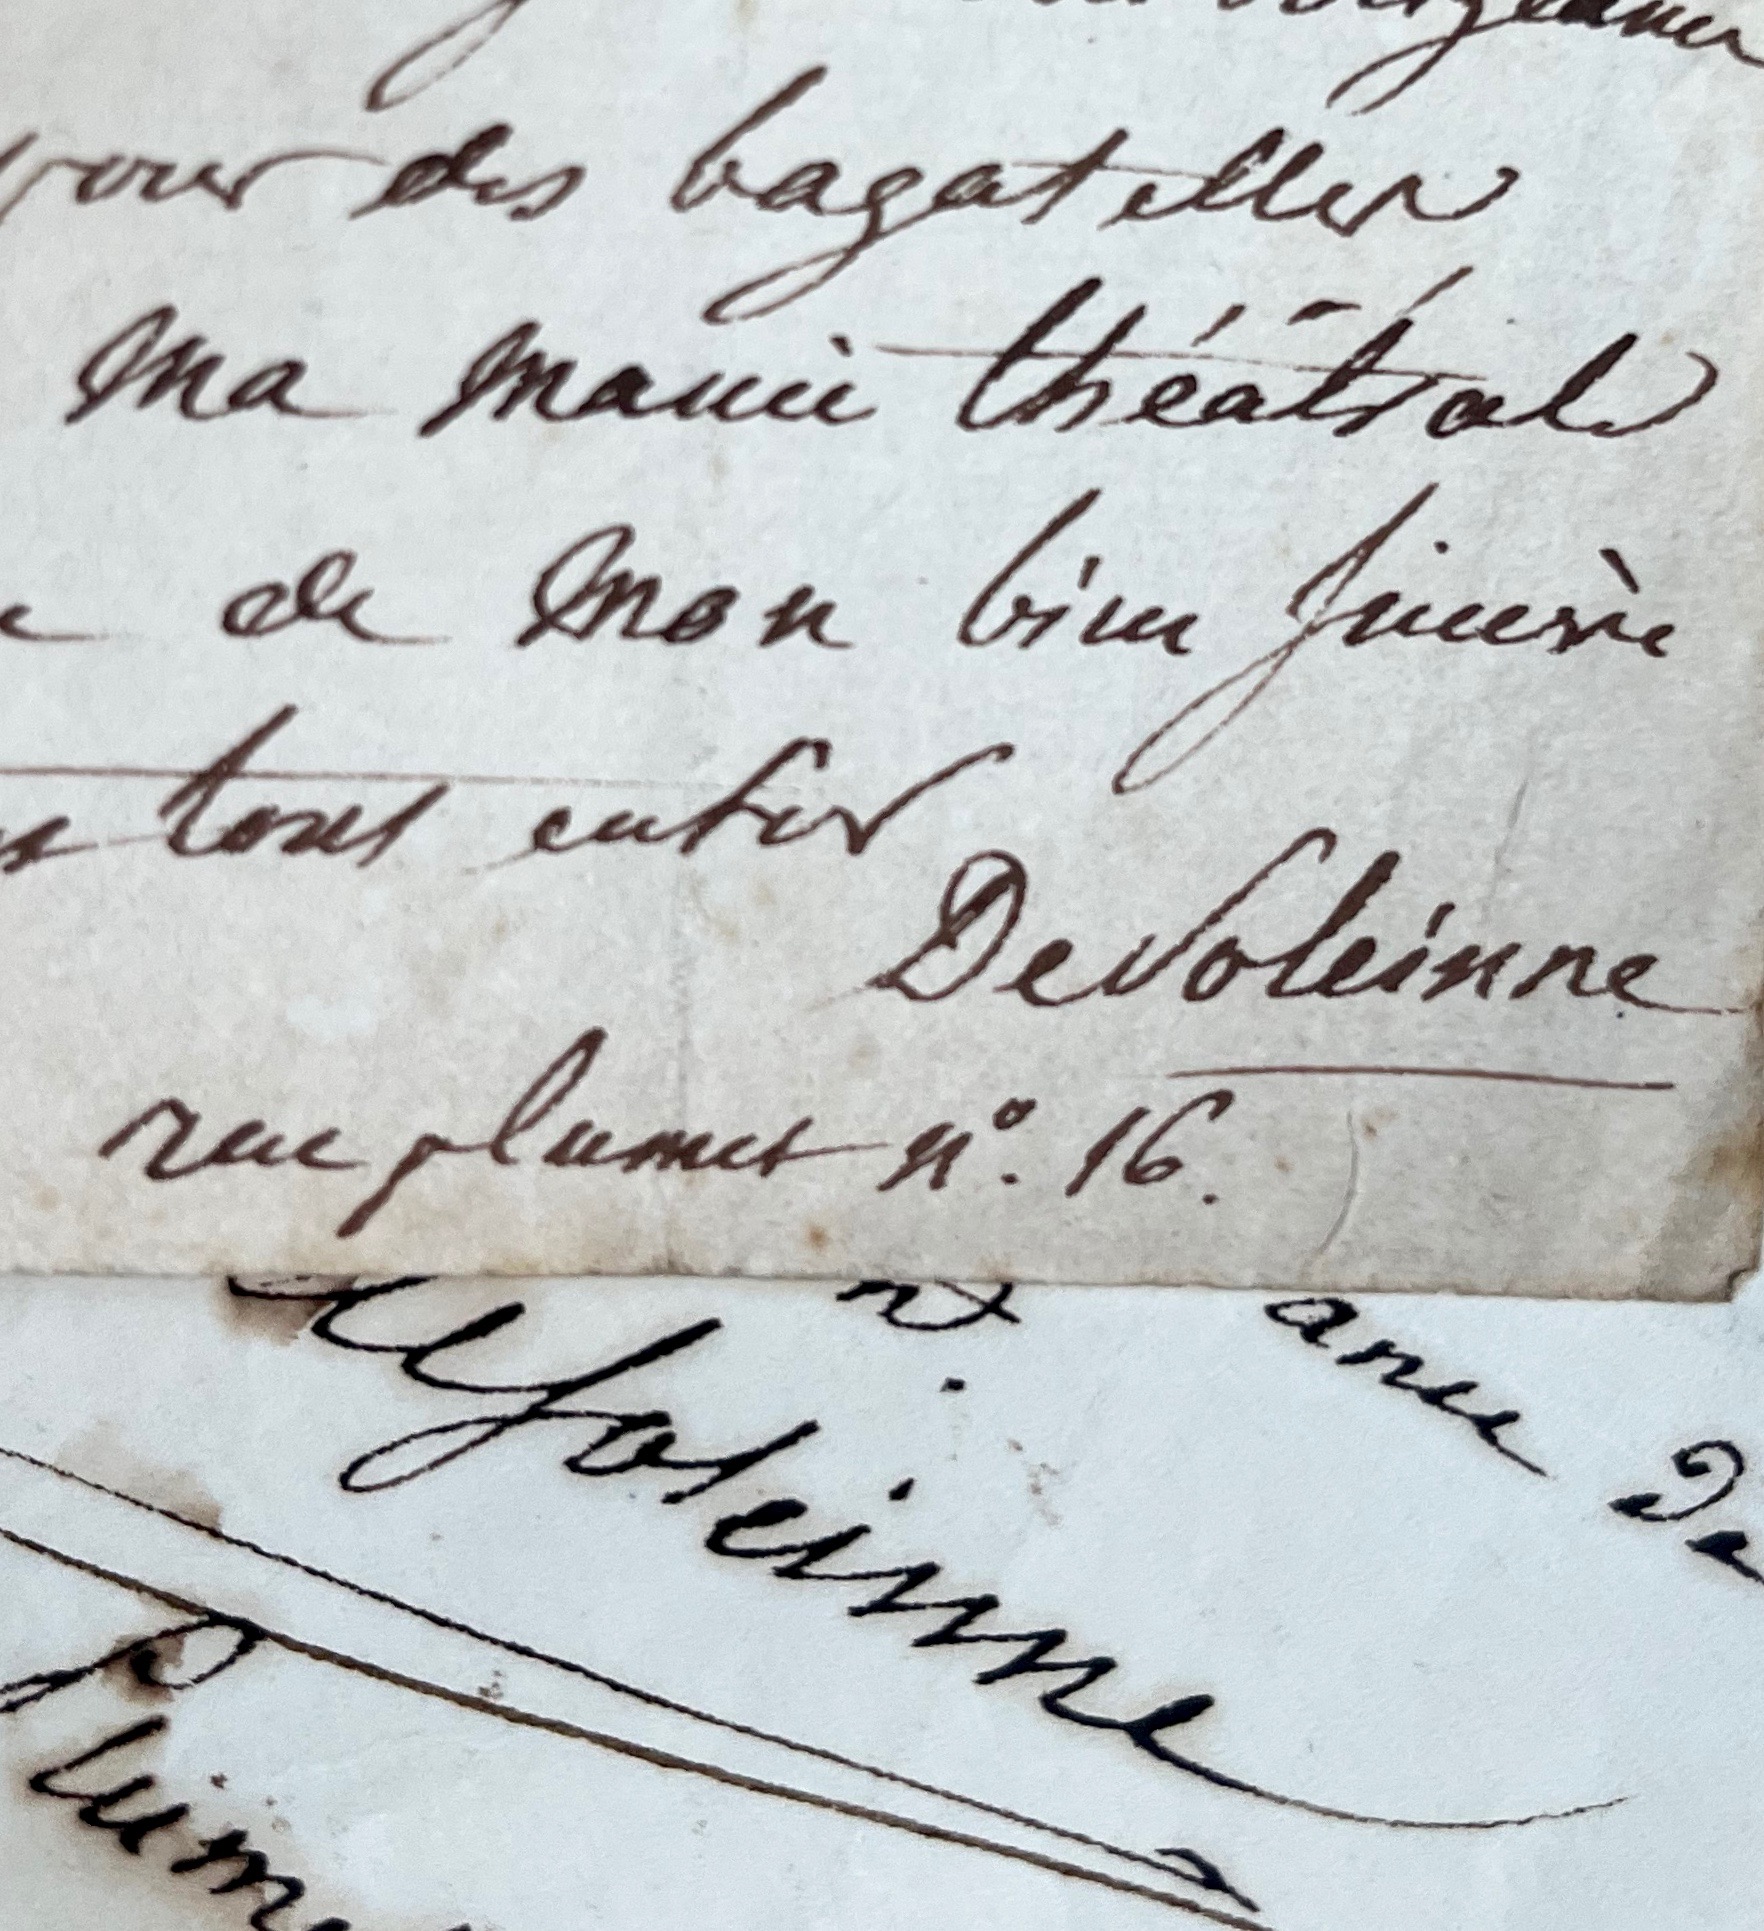 pour des bagatelles
ma manie théâtrale
de mon bien sincère
tout entier
DeVoleinne
rue plumet n°. 16.
de Soleinne
Plum